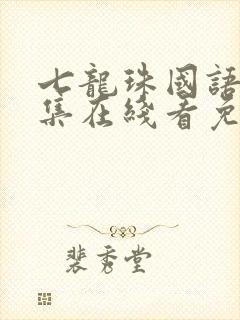 七龍珠國語
集在綫看免
裴秀堂